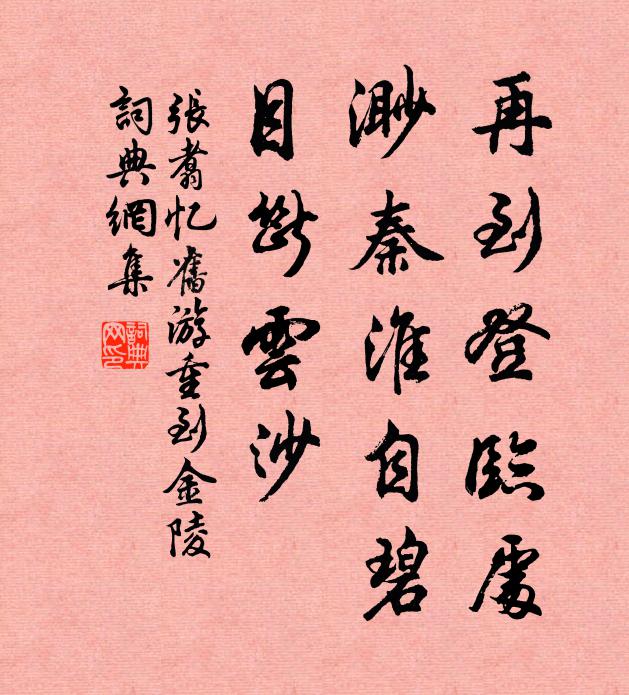 再到登臨處
渺秦淮自碧
目斷雲沙
張翥忆舊游重到金陵
詞典網集
詞典网印